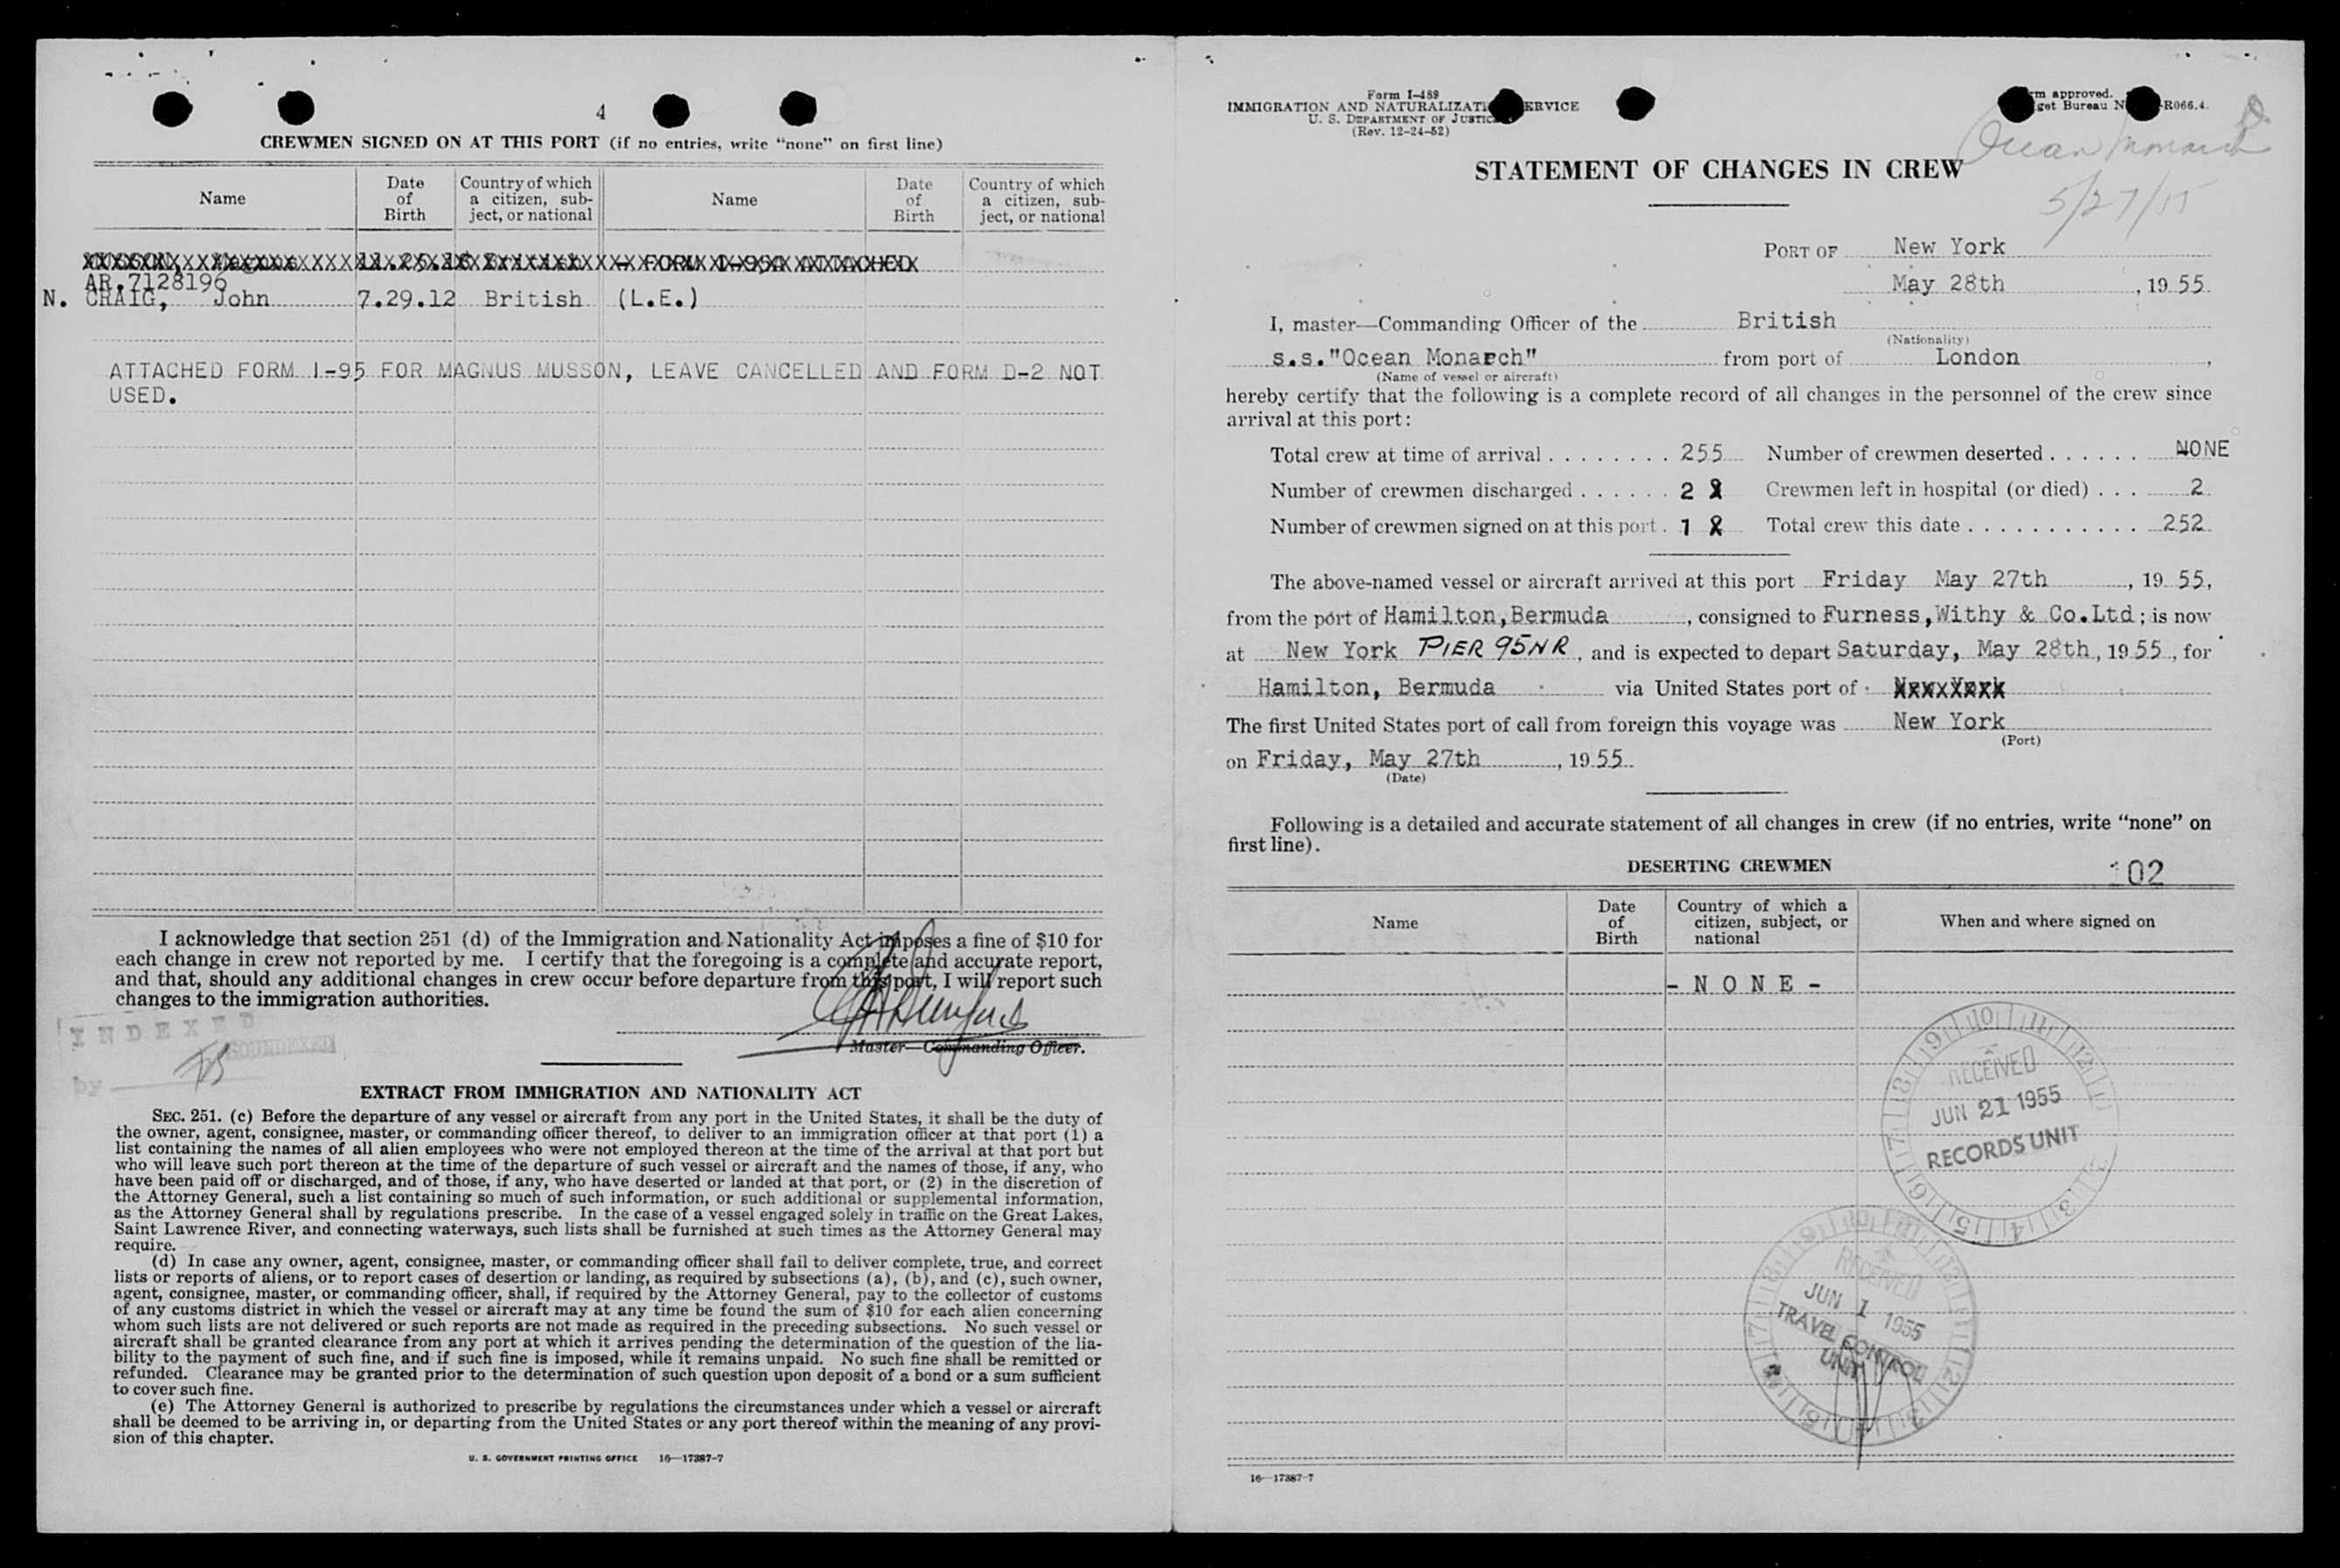 4
CREWMEN SIGNED ON AT THIS PORT (if no entries, write "none" on first line)
Name
Date of Birth
Country of which a citizen, subject, or national
Name
Date of Birth
Country of which a citizen, subject, or national
FORM I-95A ATTACHED
AR.7128196
N. CRAIG, John 7.29.12 British (L.E.)
ATTACHED FORM I-95 FOR MAGNUS MUSSON, LEAVE CANCELLED AND FORM D-2 NOT
USED.
I acknowledge that section 251 (d) of the Immigration and Nationality Act imposes a fine of $10 for
each change in crew not reported by me. I certify that the foregoing is a complete and accurate report,
and that, should any additional changes in crew occur before departure from this port, I will report such
changes to the immigration authorities.
INDEXED
SOUNDEXED
by
Master—Commanding Officer.
EXTRACT FROM IMMIGRATION AND NATIONALITY ACT
SEC. 251. (c) Before the departure of any vessel or aircraft from any port in the United States, it shall be the duty of
the owner, agent, consignee, master, or commanding officer thereof, to deliver to an immigration officer at that port (1) a
list containing the names of all alien employees who were not employed thereon at the time of the arrival at that port but
who will leave such port thereon at the time of the departure of such vessel or aircraft and the names of those, if any, who
have been paid off or discharged, and of those, if any, who have deserted or landed at that port, or (2) in the discretion of
the Attorney General, such a list containing so much of such information, or such additional or supplemental information,
as the Attorney General shall by regulations prescribe. In the case of a vessel engaged solely in traffic on the Great Lakes,
Saint Lawrence River, and connecting waterways, such lists shall be furnished at such times as the Attorney General may
require.
(d) In case any owner, agent, consignee, master, or commanding officer shall fail to deliver complete, true, and correct
lists or reports of aliens, or to report cases of desertion or landing, as required by subsections (a), (b), and (c), such owner,
agent, consignee, master, or commanding officer, shall, if required by the Attorney General, pay to the collector of customs
of any customs district in which the vessel or aircraft may at any time be found the sum of $10 for each alien concerning
whom such lists are not delivered or such reports are not made as required in the preceding subsections. No such vessel or
aircraft shall be granted clearance from any port at which it arrives pending the determination of the question of the lia-
bility to the payment of such fine, and if such fine is imposed, while it remains unpaid. No such fine shall be remitted or
refunded. Clearance may be granted prior to the determination of such question upon deposit of a bond or a sum sufficient
to cover such fine.
(e) The Attorney General is authorized to prescribe by regulations the circumstances under which a vessel or aircraft
shall be deemed to be arriving in, or departing from the United States or any port thereof within the meaning of any provi-
sion of this chapter.
U. S. GOVERNMENT PRINTING OFFICE 16—17387-7
Form I-489
IMMIGRATION AND NATURALIZATI ERVICE
U. S. DEPARTMENT OF JUSTIC
(Rev. 12-24-52)
rm approved.
get Bureau N -R066.4.
Ocean Monarch
5/27/55
STATEMENT OF CHANGES IN CREW
PORT OF New York
May 28th, 1955
I, master—Commanding Officer of the British
(Nationality)
s.s."Ocean Monarch" from port of London,
(Name of vessel or aircraft)
hereby certify that the following is a complete record of all changes in the personnel of the crew since
arrival at this port:
Total crew at time of arrival . . . . . . . . 255 Number of crewmen deserted . . . . . . NONE
Number of crewmen discharged . . . . . . 2 Crewmen left in hospital (or died) . . . 2
Number of crewmen signed on at this port . 1 Total crew this date . . . . . . . . . . . 252
The above-named vessel or aircraft arrived at this port Friday May 27th, 1955,
from the port of Hamilton,Bermuda, consigned to Furness,Withy & Co.Ltd; is now
at New York PIER 95NR, and is expected to depart Saturday, May 28th, 1955, for
Hamilton, Bermuda via United States port of New York
The first United States port of call from foreign this voyage was New York
(Port)
on Friday, May 27th, 1955
(Date)
Following is a detailed and accurate statement of all changes in crew (if no entries, write "none" on
first line).
DESERTING CREWMEN
102
Name
Date of Birth
Country of which a citizen, subject, or national
When and where signed on
- N O N E -
RECEIVED
JUN 21 1955
RECORDS UNIT
RECEIVED
JUN 1 1955
TRAVEL CONTROL
UNIT
16—17387-7